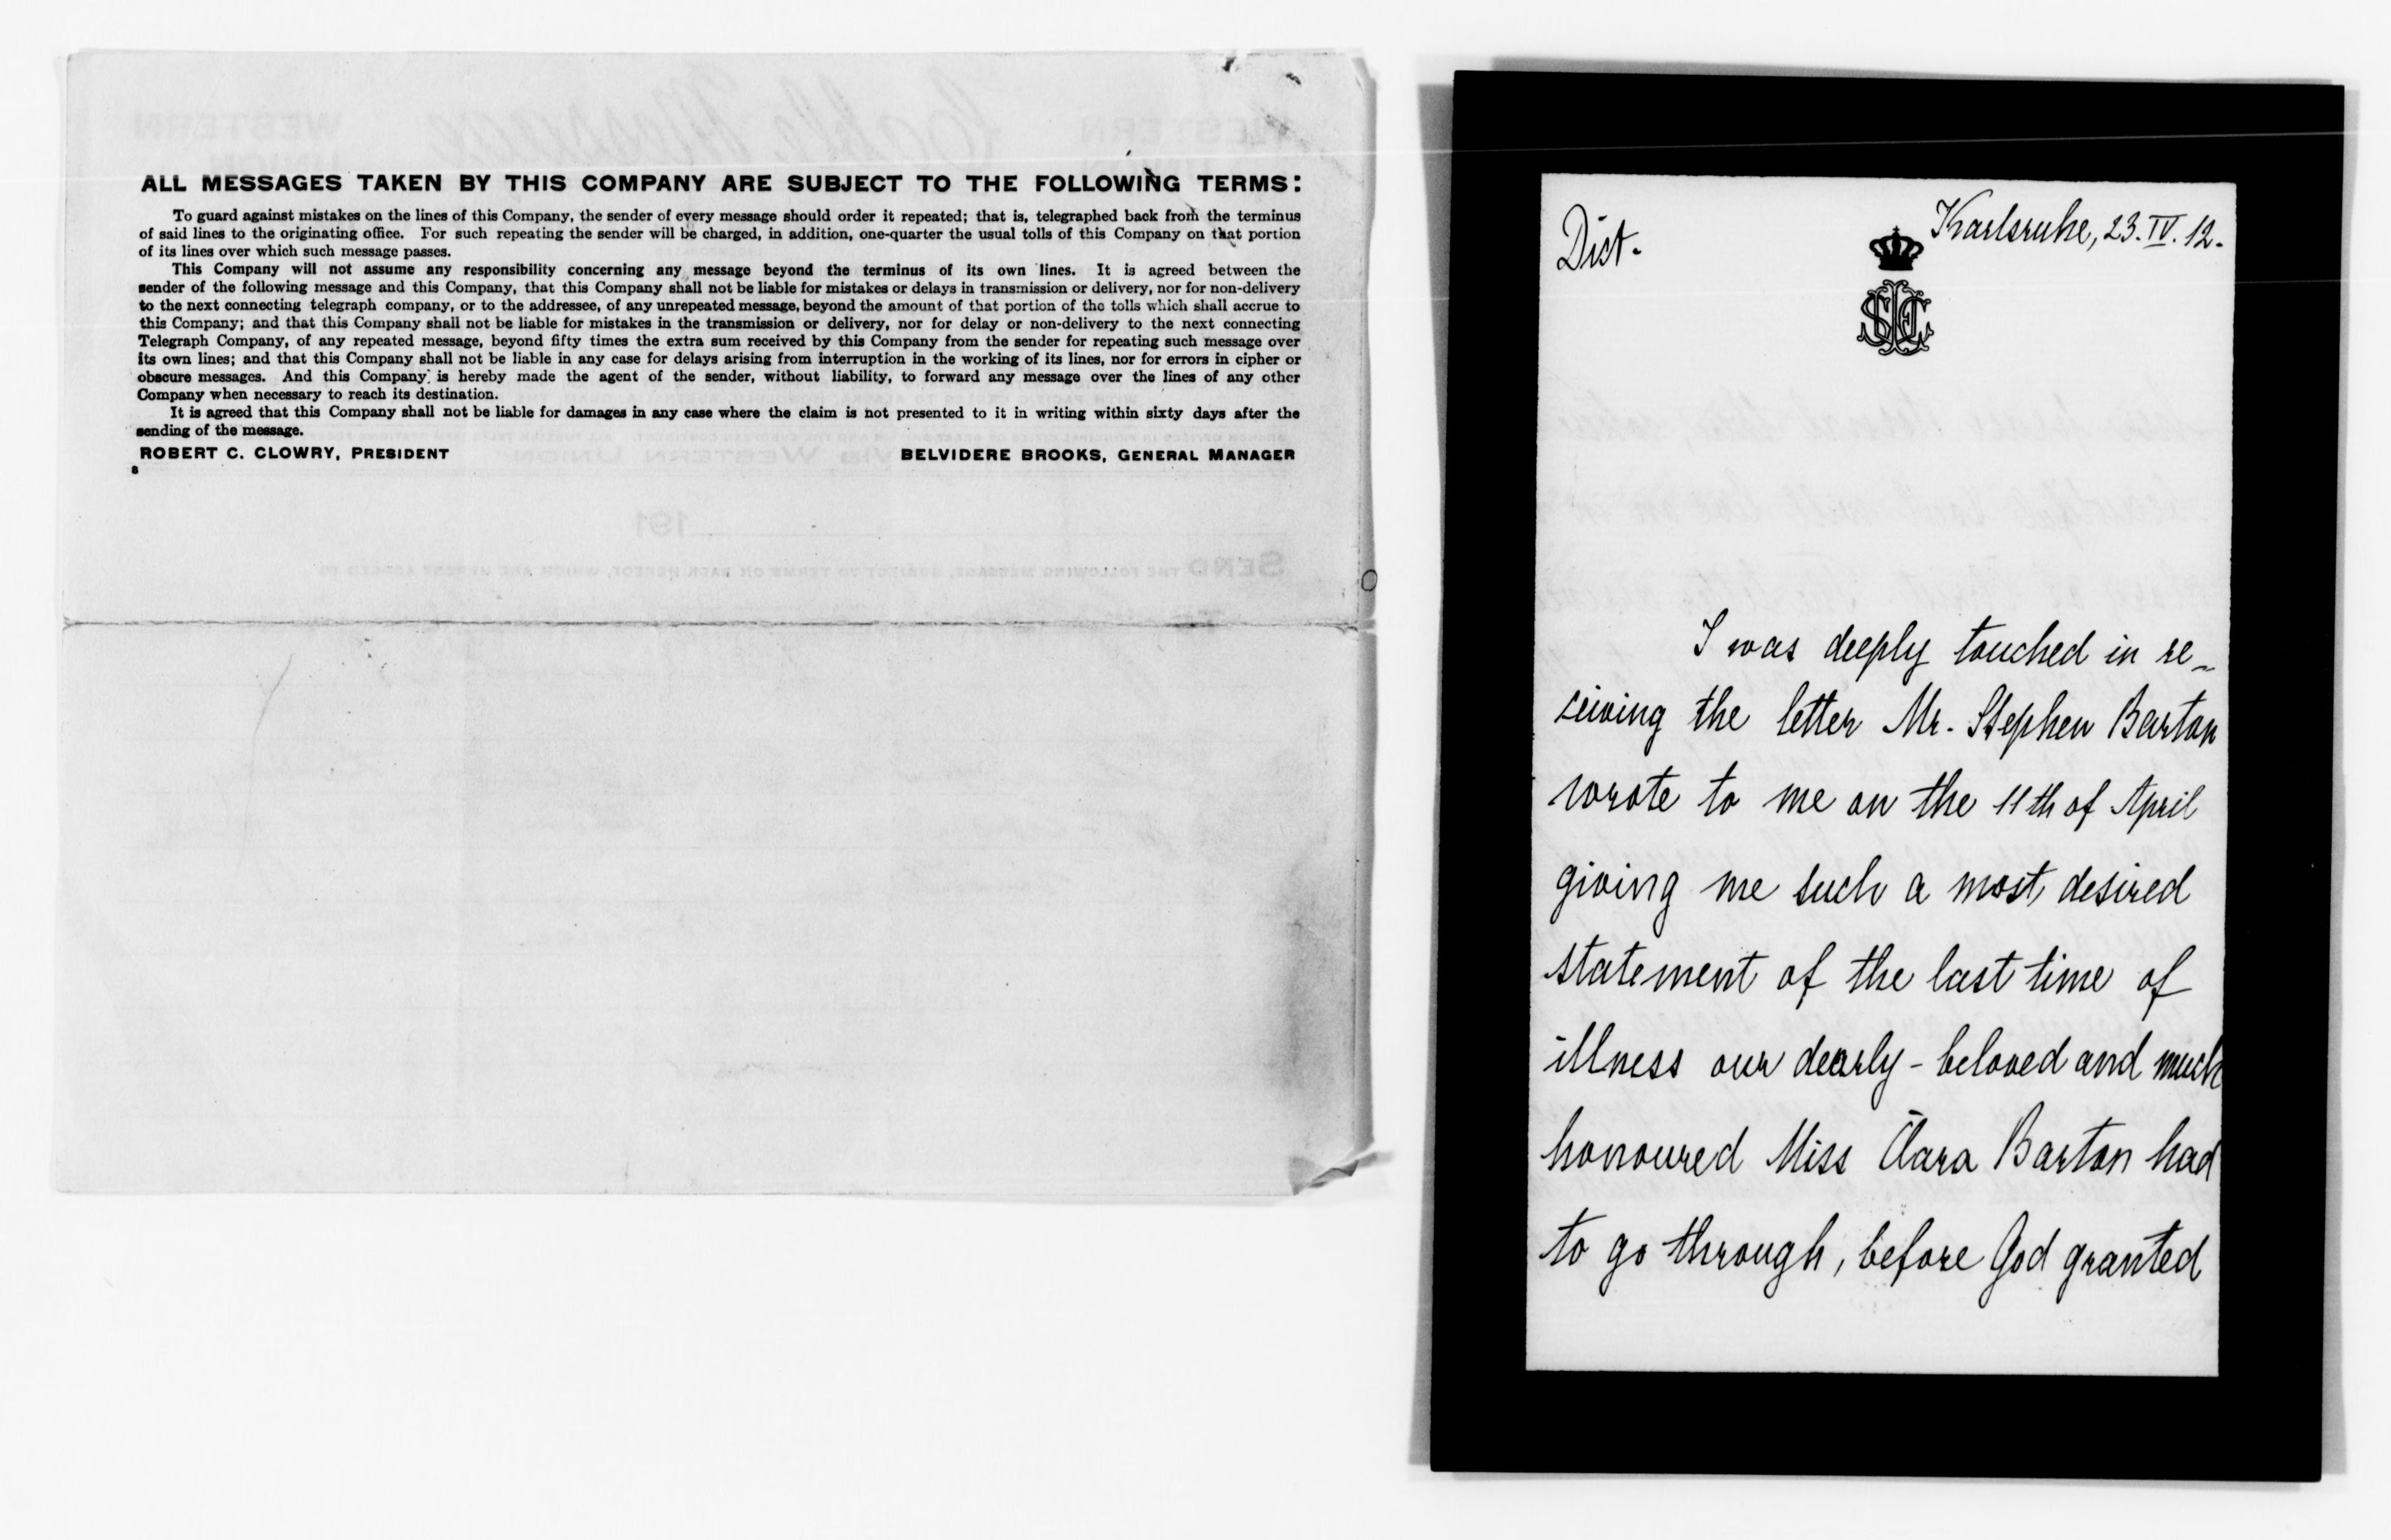 ALL MESSAGES TAKEN BY THIS COMPANY ARE SUBJECT TO THE FOLLOWING TERMS:
To guard against mistakes on the lines of this Company, the sender of every message should order it repeated; that is, telegraphed back from the terminus
of said lines to the originating office. For such repeating the sender will be charged, in addition, one-quarter the usual tolls of this Company on that portion
of its lines over which such message passes.
This Company will not assume any responsibility concerning any message beyond the terminus of its own lines. It is agreed between the
sender of the following message and this Company, that this Company shall not be liable for mistakes or delays in transmission or delivery, nor for non-delivery
to the next connecting telegraph company, or to the addressee, of any unrepeated message, beyond the amount of that portion of the tolls which shall accrue to
this Company; and that this Company shall not be liable for mistakes in the transmission or delivery, nor for delay or non-delivery to the next connecting
Telegraph Company, of any repeated message, beyond fifty times the extra sum received by this Company from the sender for repeating such message over
its own lines; and that this Company shall not be liable in any case for delays arising from interruption in the working of its lines, nor for errors in cipher or
obscure messages. And this Company is hereby made the agent of the sender, without liability, to forward any message over the lines of any other
Company when necessary to reach its destination.
It is agreed that this Company shall not be liable for damages in any case where the claim is not presented to it in writing within sixty days after the
sending of the message.
ROBERT C. CLOWRY, PRESIDENT BELVIDERE BROOKS, GENERAL MANAGER
8
Dict. Karlsruhe, 23. IV. 12.
I was deeply touched in re-
ceiving the letter Mr. Stephen Barton
wrote to me on the 11th of April
giving me such a most desired
statement of the last time of
illness our dearly-beloved and much
honoured Miss Clara Barton had
to go through, before God granted